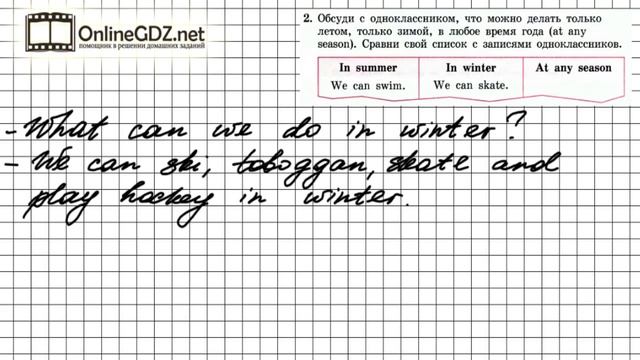 OnlineGDZ.net
помощник в решении домашних заданий
2. Обсуди с одноклассником, что можно делать только
летом, только зимой, в любое время года (at any
season). Сравни свой список с записями одноклассников.
In summer In winter At any season
We can swim. We can skate.
- What can we do in winter?
- We can ski, toboggan, skate and
play hockey in winter.